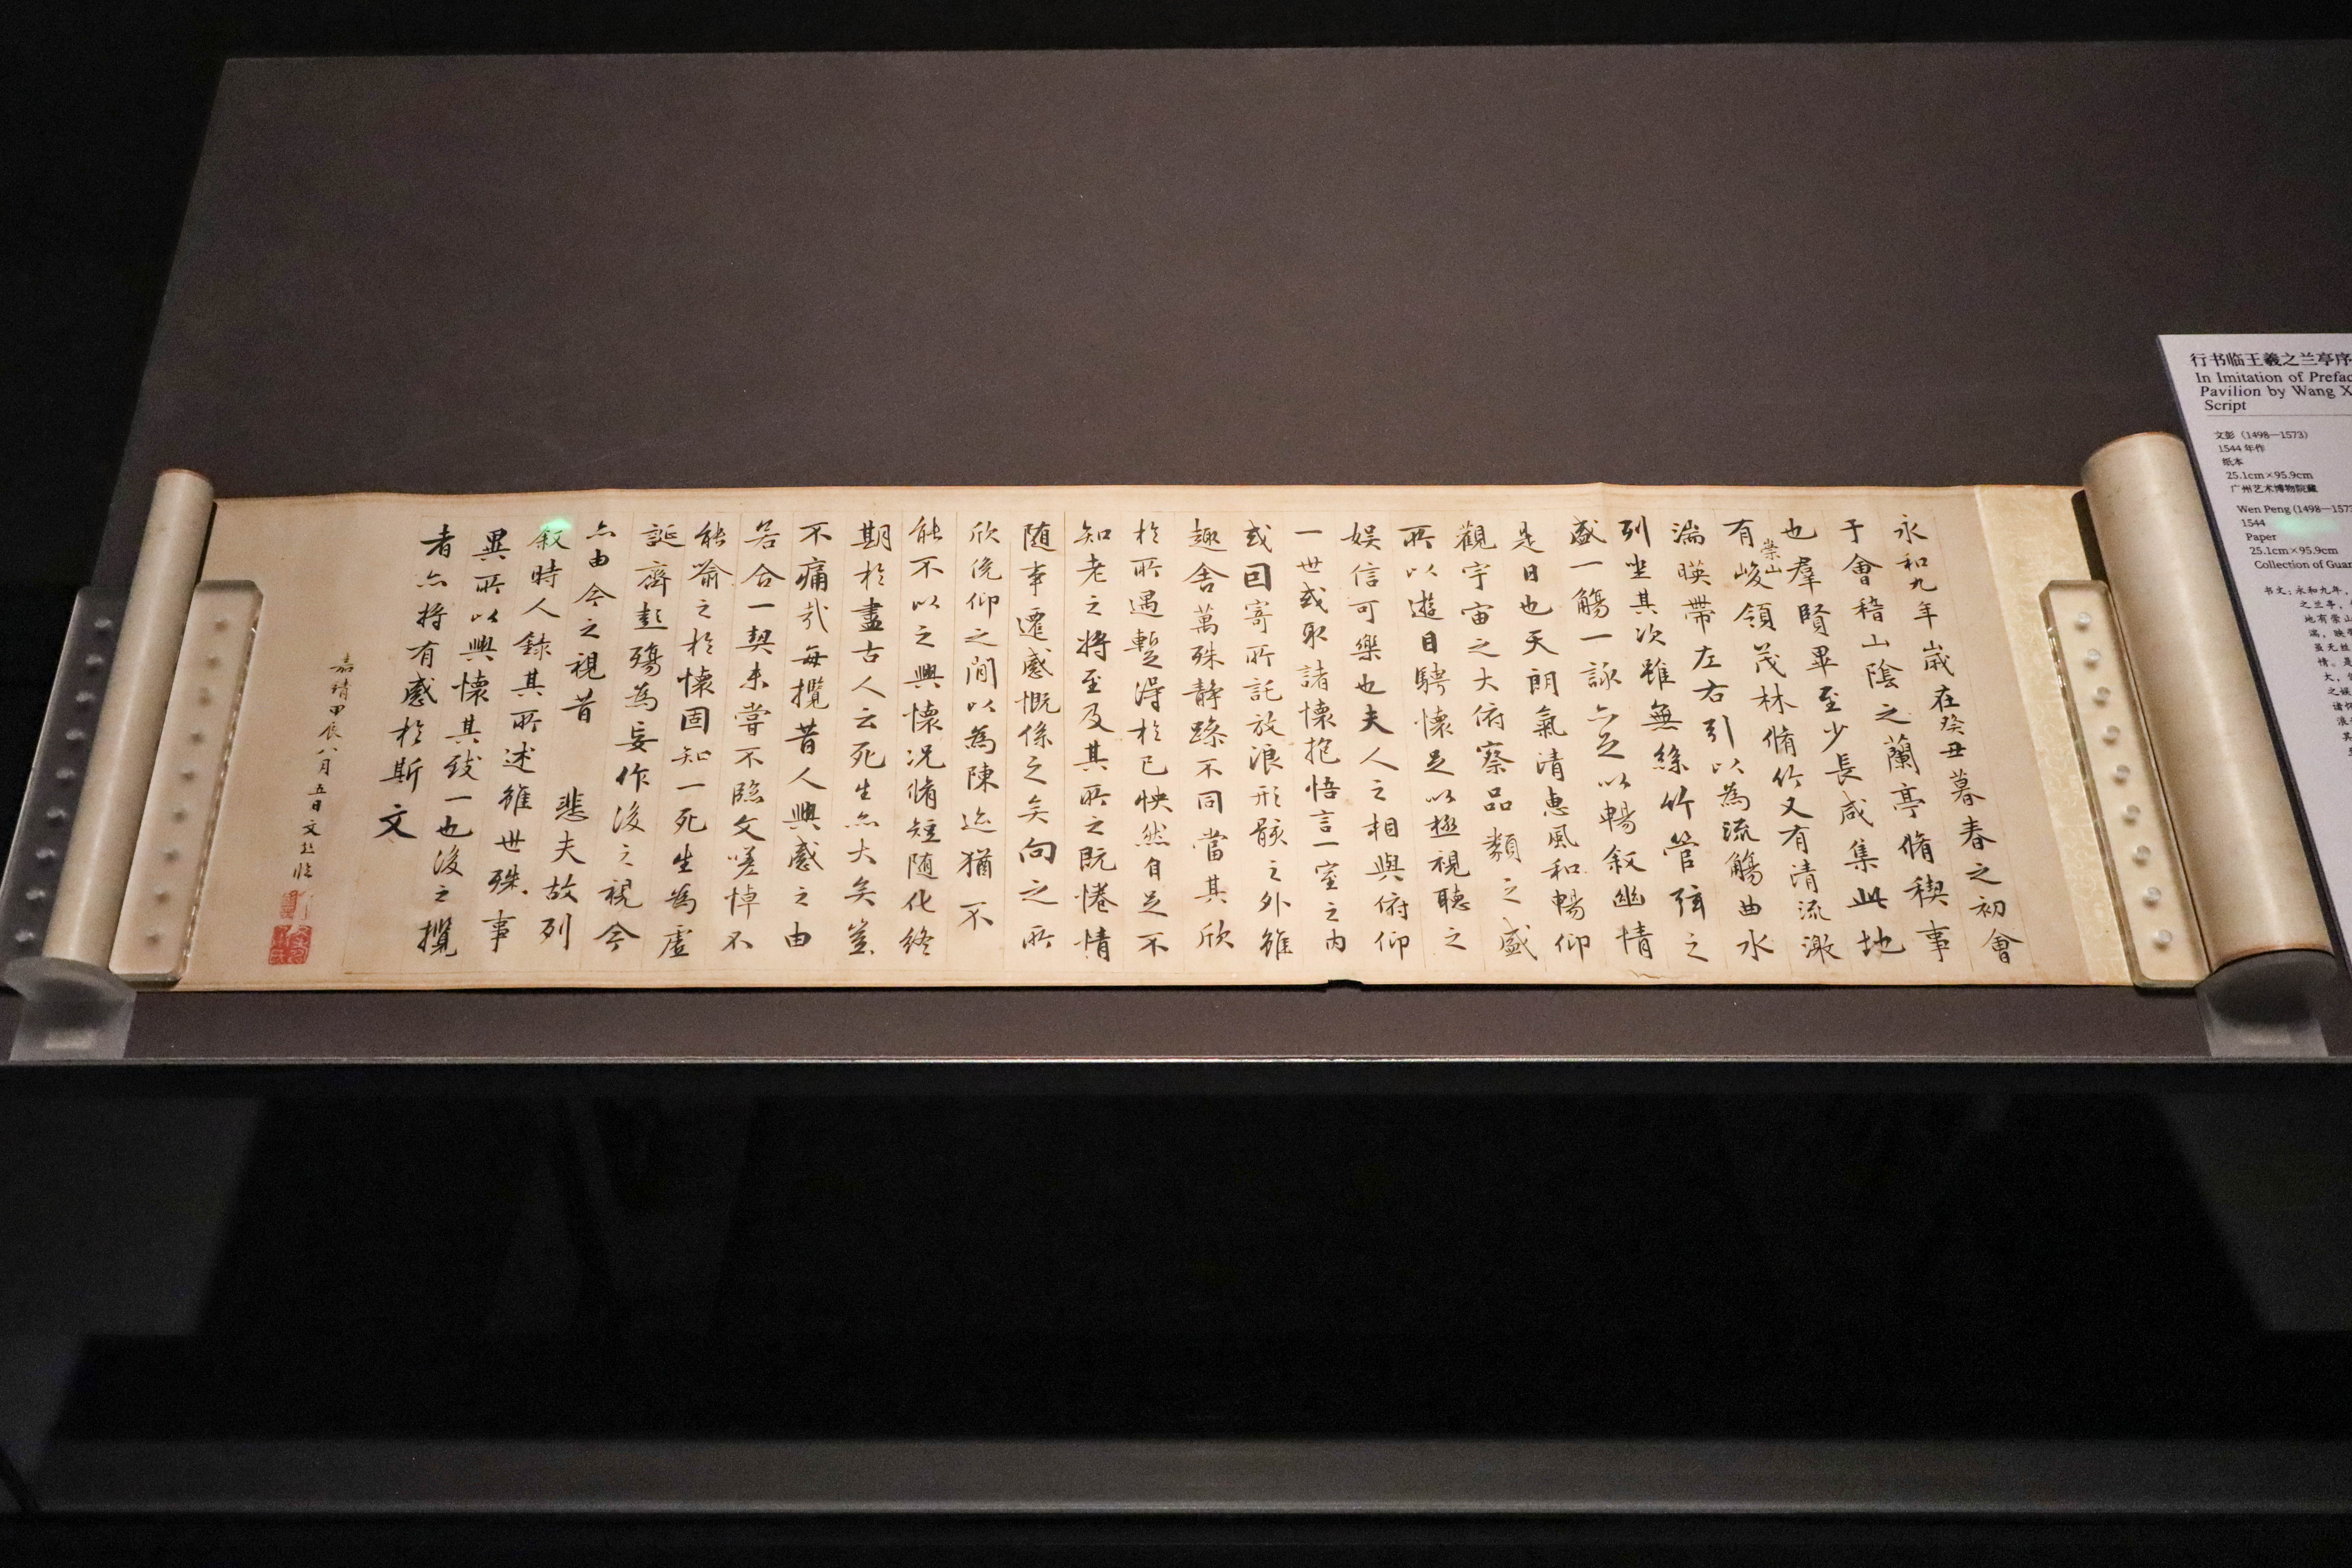 永和九年歲在癸丑暮春之初會
于會稽山陰之蘭亭脩稧事
也羣賢畢至少長咸集此地
有崇山峻領茂林脩竹又有清流激
湍暎帶左右引以為流觴曲水
列坐其次雖無絲竹管弦之
盛一觴一詠亦足以暢叙幽情
是日也天朗氣清惠風和暢仰
觀宇宙之大俯察品類之盛
所以遊目騁懷足以極視聽之
娛信可樂也夫人之相與俯仰
一世或取諸懷抱悟言一室之內
或因寄所託放浪形骸之外雖
趣舍萬殊静躁不同當其欣
於所遇蹔得於己快然自足不
知老之將至及其所之既惓情
随事遷感慨係之矣向之所
欣俛仰之閒以為陳迹猶不
能不以之興懷况脩短随化終
期於盡古人云死生亦大矣豈
不痛哉每攬昔人興感之由
若合一契未嘗不臨文嗟悼不
能喻之於懷固知一死生為虛
誕齊彭殤為妄作後之視今
亦由今之視昔 悲夫故列
叙時人錄其所述雖世殊事
異所以興懷其致一也後之攬
者亦將有感於斯文
嘉靖甲辰八月五日文彭臨
行书临王羲之兰亭序
In Imitation of
Pavilion by Wang
Script
文彭（1498—1573）
1544 年作
纸本
25.1cm×95.9cm
广州艺术博物院藏
Wen Peng (1498—157
1544
Paper
25.1cm×95.9cm
Collection of
书文：永和九年，
之兰亭，
地有崇山
湍，映
虽无丝
情。是
大，
之娱
诸怀
浪
其